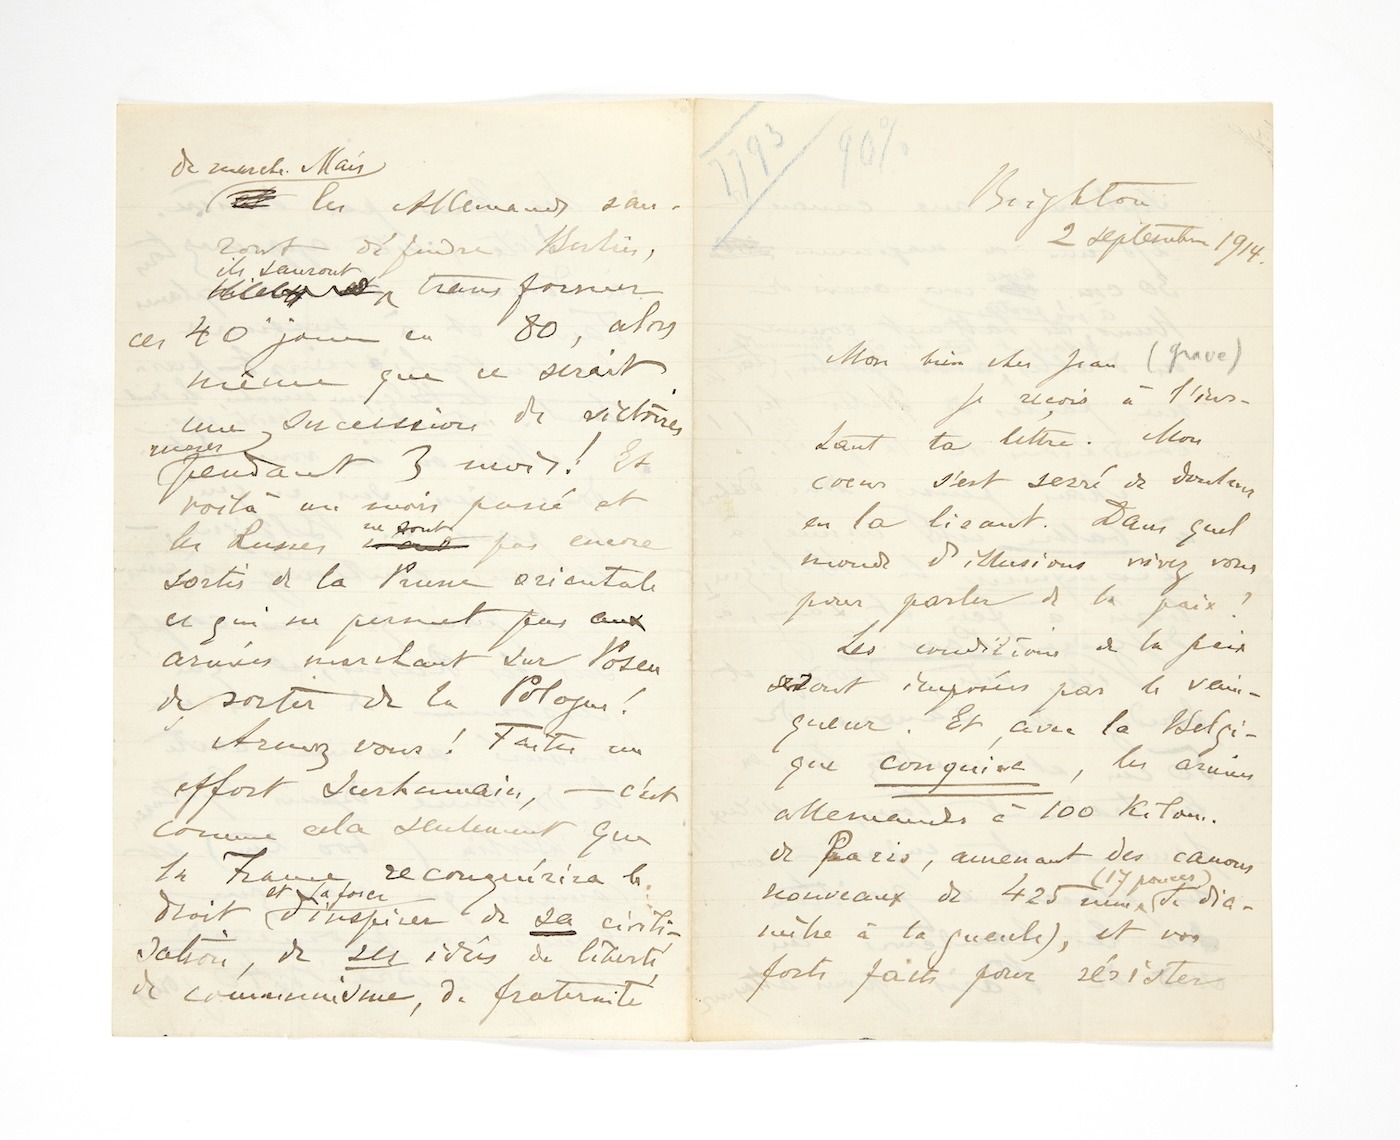 7793
90%
Brighton
2 septembre 1914.
Mon bien cher Jean (grave)
Je reçois à l'ins-
tant ta lettre. Mon
coeur s'est serré de douleur
en la lisant. Dans quel
monde d'illusions vivez vous
pour parler de la paix!
Les conditions de la paix
seront imposées par le vain-
queur. Et, avec la Belgi-
que conquise, les armées
allemandes à 100 kilom.
de Paris, amenant des canons
(17 pouces)
nouveaux de 425 mm de dia-
mètre à la gueule), et vos
forts faits pour résister
de marche. Mais
les Allemands sau-
ront défendre Berlin,
ils sauront
transformer
ces 40 jours en 80, alors
même que ce serait
une succession de victoires
russes
pendant 3 mois! Et
voilà un mois passé et
les Russes ne sont pas encore
sortis de la Prusse orientale
ce qui ne permet pas aux
armées marchant sur Posen
de sortir de la Pologne!
Armez vous! Faites un
effort surhumain, — c'est
comme cela seulement que
la France reconquérira le
droit et la force d'inspirer de sa civili-
sation, de ses idées de liberté,
de communisme, de fraternité